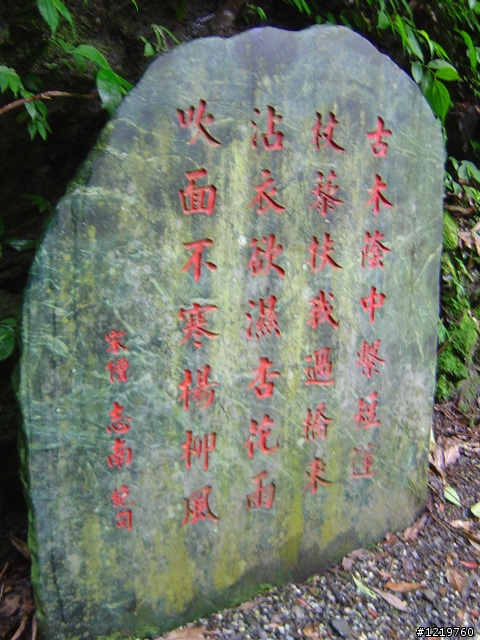 古木蔭中繫短蓬
杖藜扶我過橋東
沾衣欲濕杏花雨
吹面不寒楊柳風
宋僧 志南
#1219760